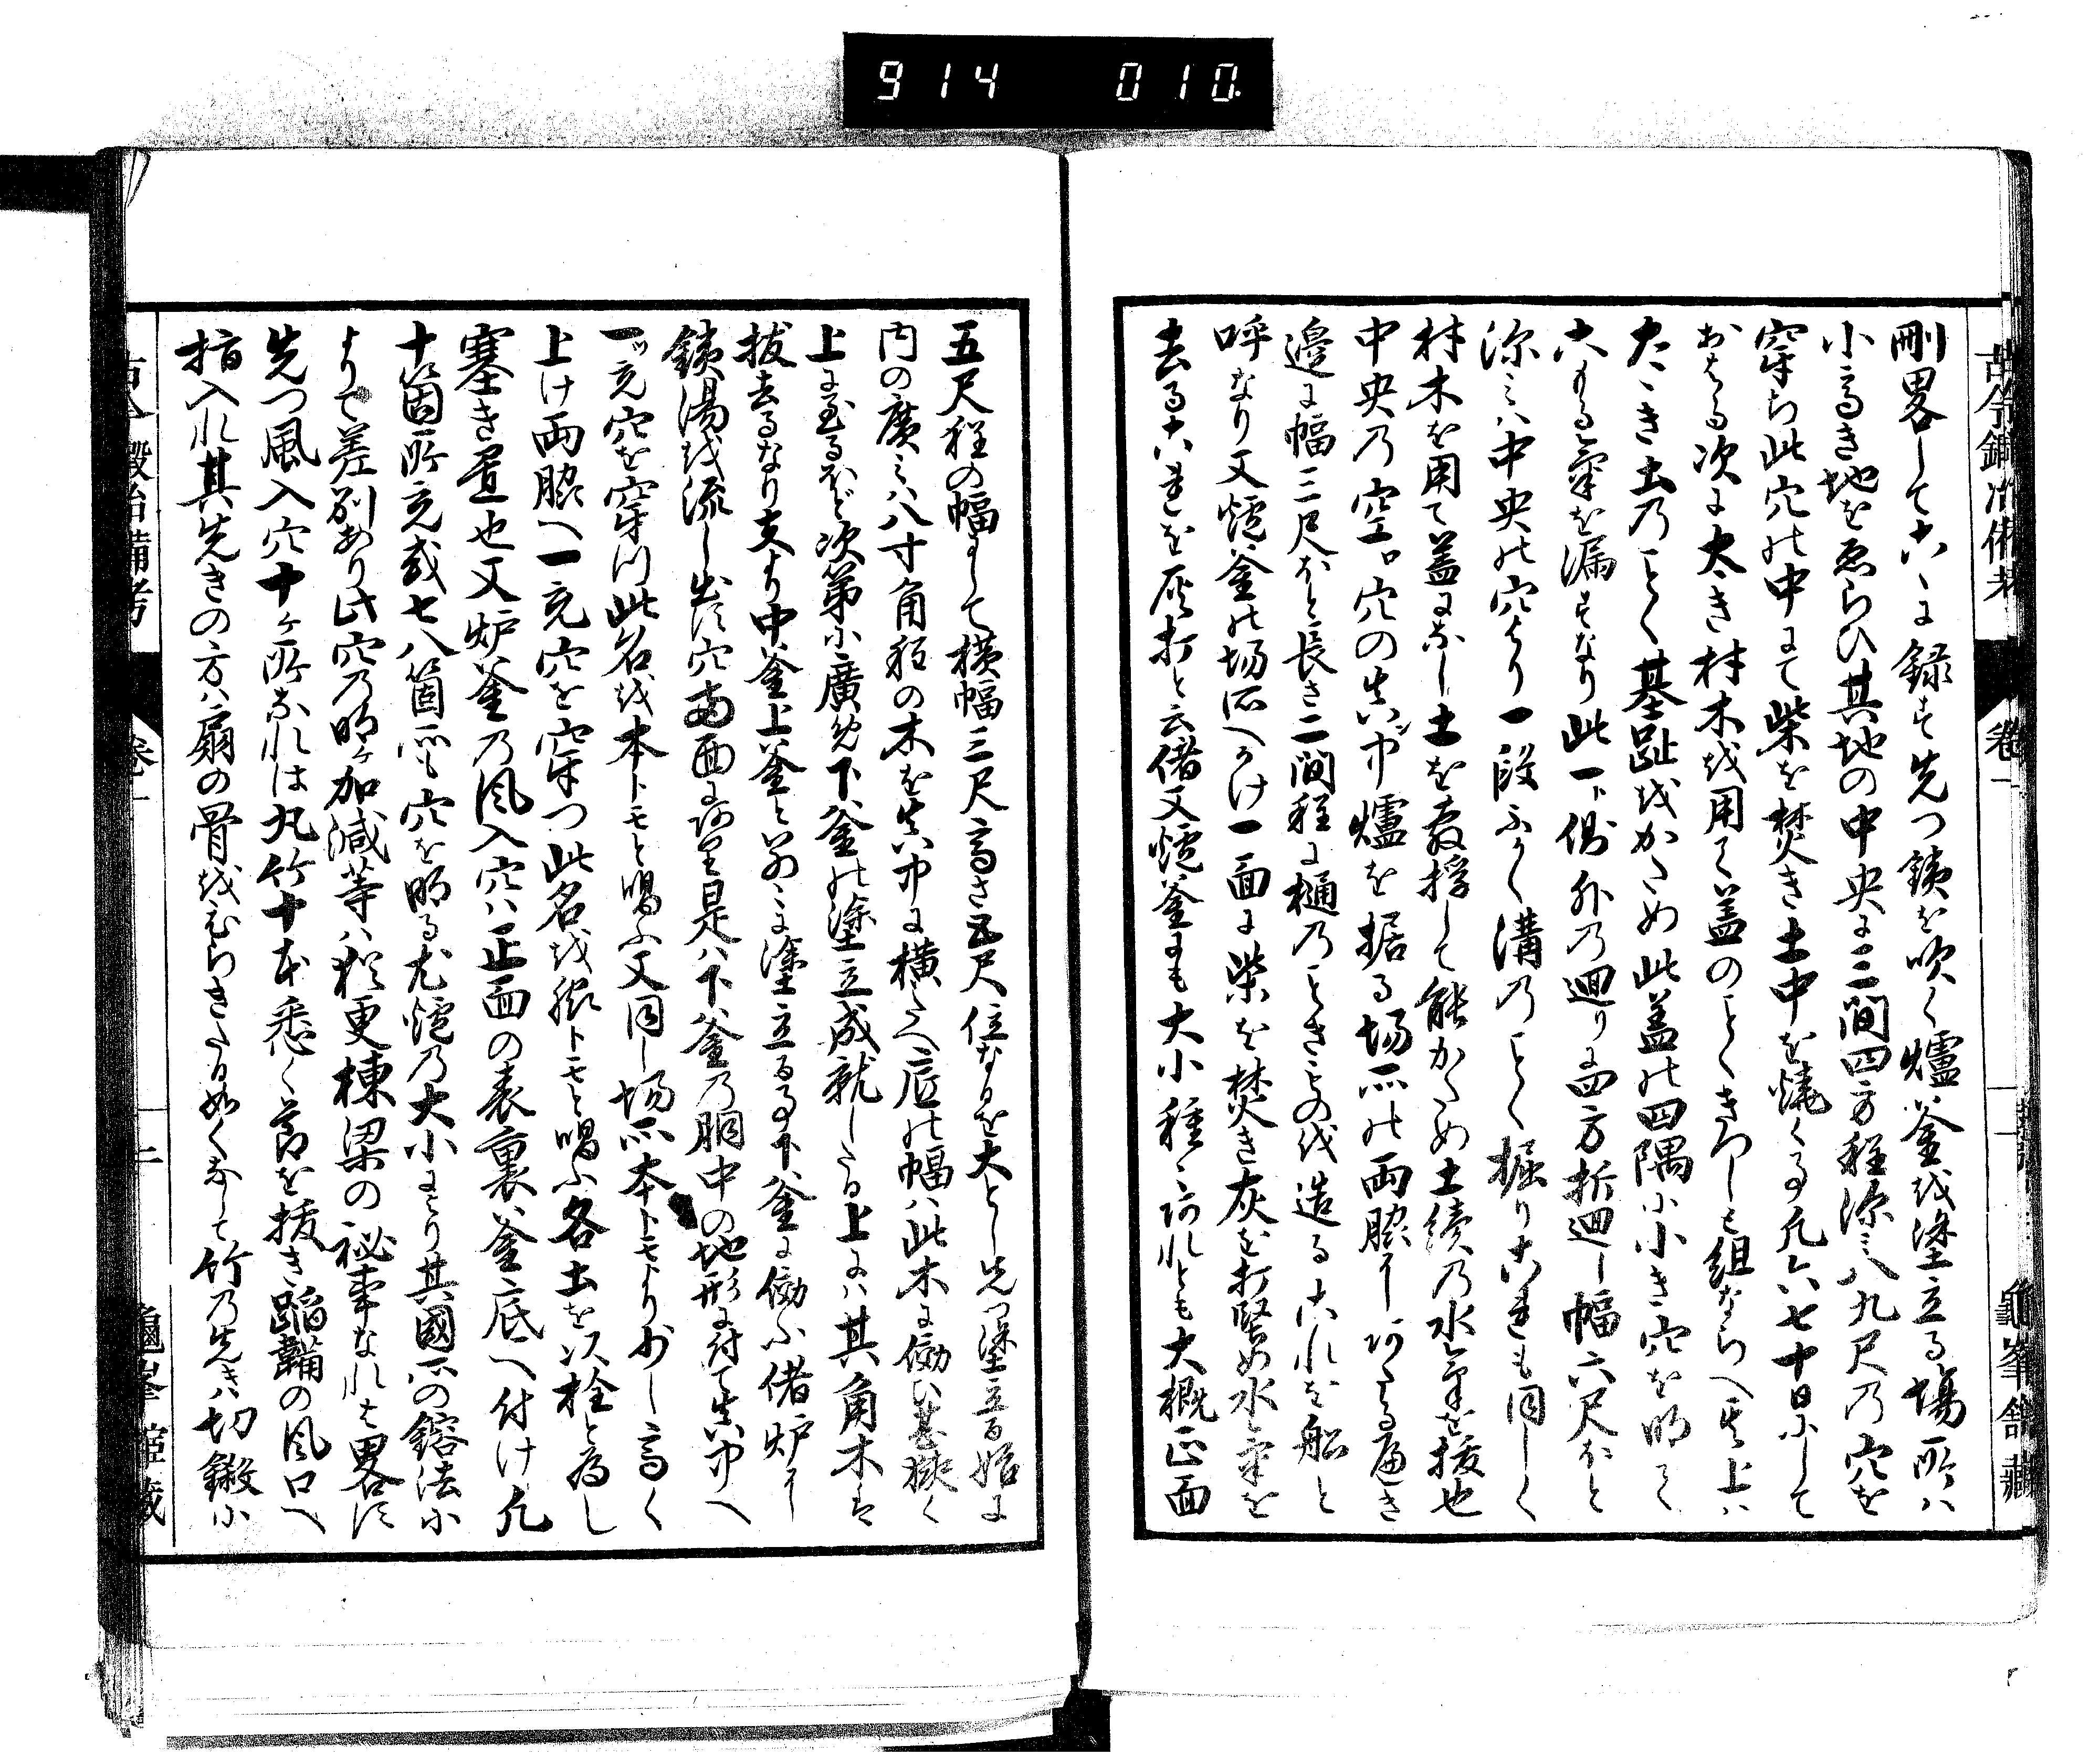 914 010
古今鍛冶備考 卷一 龜峯館藏
刪畧してこゝに録す先つ鉄を吹く爐釜を塗立る場所ハ
小高き地をゑらひ其地の中央に三間四方程深ミ八九尺の穴を
穿ち此穴の中にて柴を焚き土中を燒くる凡六七十日にして
おはる次に太き材木を用て蓋のことくきりし組ならへ其上ハ
たゝき土のことく基趾をかため此蓋の四隅に小き穴を明て
こもる氣を漏すなり此一ト側外の廻りに四方折廻し幅六尺ほと
深ミハ中央の穴より一段ふかく溝のことく掘りこれも同しく
材木を用て蓋になし土を敷して能かため土續の水氣を拔也
中央の空口穴の真ン中爐を据る場所の両脇にあたるへき
邊に幅三尺ほと長さ二間程に樋のことき ものを造るこれを船と
呼なり又爐釜の場所へかけ一面に柴を焚き灰を打堅め水氣を
去るこれを灰打と云偖又爐釜にも大小種〻あれとも大概正面
五尺程の幅にして横幅三尺高さ五尺位なるを大とし先つ塗立る始に
内の廣ミハ八寸角程の木を真中に横たへ底の幅ハ此木に倣ひ甚狹く
上に至るほど次第に廣め下釜の塗立成就したる上にハ其角木を
拔去るなり夫より中釜上釜と別〻に塗立る事下釜に倣ふ偖炉に
鉄湯を流し出す穴両面にあり是ハ下釜の胴中の地形に付て真中へ
一ツ充穴を穿つ此名を本トモと唱ふ又同し場所本トモより少し高く
上け両脇へ一充穴を穿つ此名を脇トモと唱ふ各土を以栓と為し
塞き置也又炉釜の風入穴ハ正面の表裏釜底へ付け凡
十箇所充或七八箇所も穴を明る尤爐の大小により其國所の鎔法に
よりて差別あり此穴の明ケ加減等ハ殊更棟梁の祕事なれは畧す
先つ風入穴十ケ所なれは丸竹十本悉く節を拔き蹈鞴の風口へ
指入れ其先きの方ハ扇の骨をひらきたる如くなして竹の先きハ切鍬に
古今鍛冶備考 卷一 十一 龜峯館藏